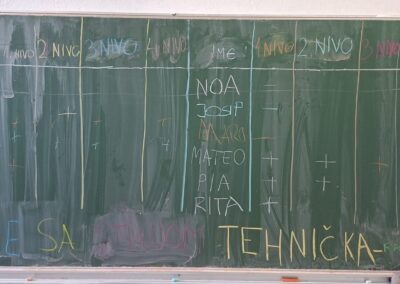 1. NIVO 2. NIVO 3. NIVO 4. NIVO IME 1. NIVO 2. NIVO 3. NIVO
NOA -
JOSIP -
+ + MARO
+ + MATEO + + +
+ + PIA + +
RITA +
E SA TEHNIČKA-